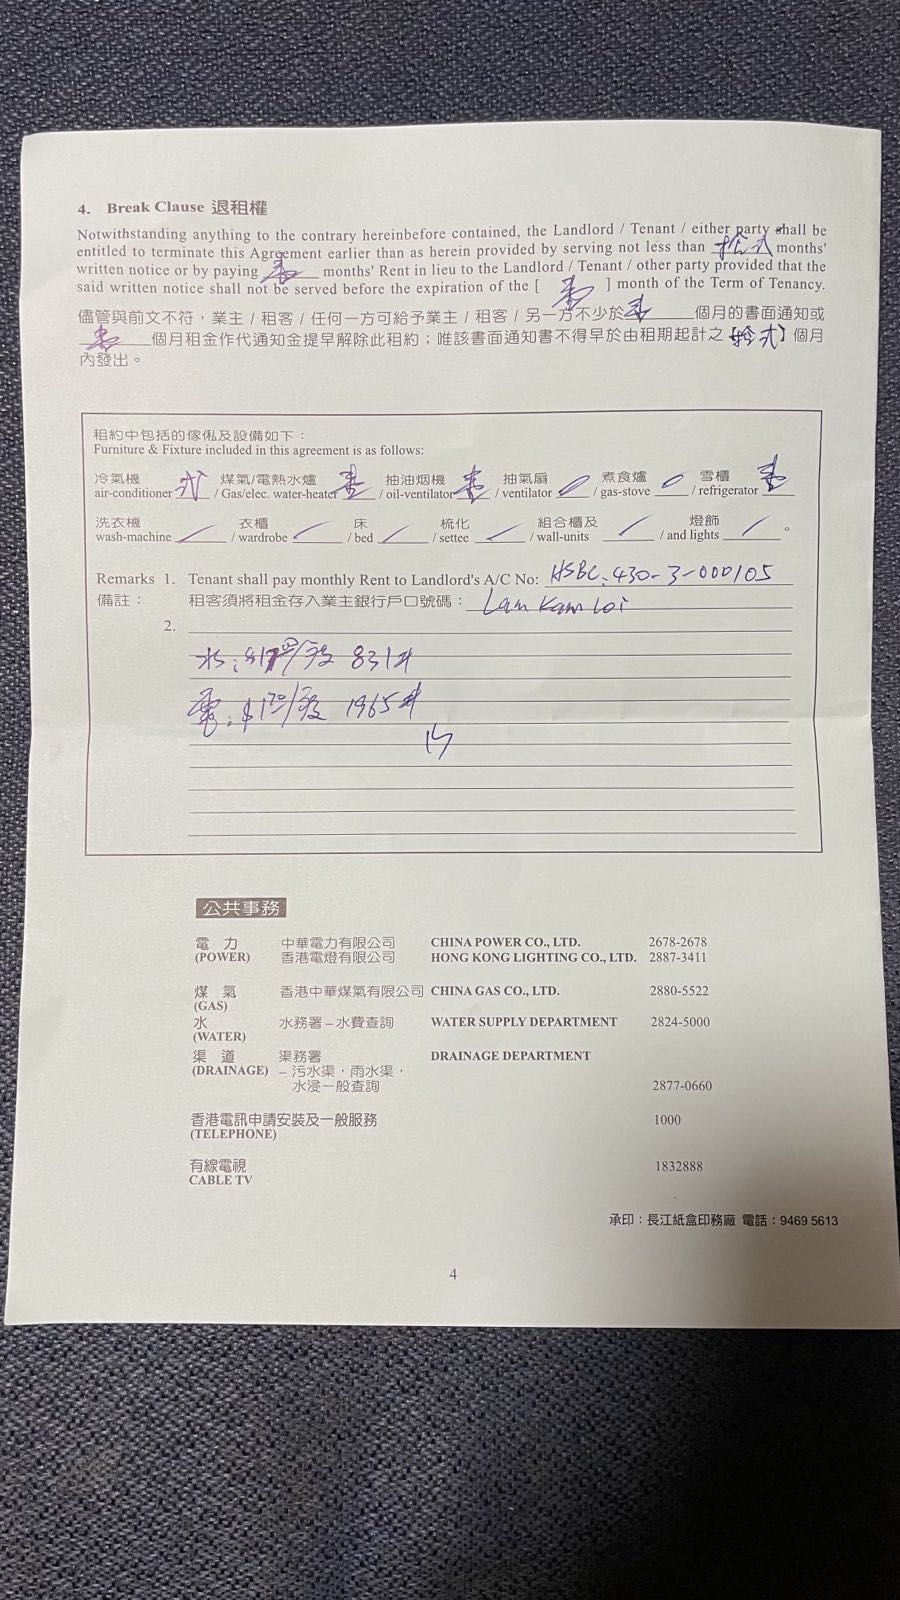 4. Break Clause 退租權
Notwithstanding anything to the contrary hereinbefore contained, the Landlord / Tenant / either party shall be
entitled to terminate this Agreement earlier than as herein provided by serving not less than 拾弍 months'
written notice or by paying 壹 months' Rent in lieu to the Landlord / Tenant / other party provided that the
said written notice shall not be served before the expiration of the [ 壹 ] month of the Term of Tenancy.
儘管與前文不符，業主 / 租客 / 任何一方可給予業主 / 租客 / 另一方不少於 壹 個月的書面通知或
壹 個月租金作代通知金提早解除此租約；唯該書面通知書不得早於由租期起計之【拾弍】個月
內發出。
租約中包括的傢俬及設備如下：
Furniture & Fixture included in this agreement is as follows:
冷氣機 煤氣/電熱水爐 抽油烟機 抽氣扇 煮食爐 雪櫃
air-conditioner 弍 / Gas/elec. water-heater 壹 / oil-ventilator 壹 / ventilator 0 / gas-stove 0 / refrigerator 壹
洗衣機 衣櫃 床 梳化 組合櫃及 燈飾
wash-machine / wardrobe / bed / settee / wall-units / and lights 。
Remarks 1. Tenant shall pay monthly Rent to Landlord's A/C No: HSBC: 430-3-000105
備註： 租客須將租金存入業主銀行戶口號碼： Lam Kam Loi
2.
水: /度 831#
電: $1.70/度 1965#
公共事務
電 力 中華電力有限公司 CHINA POWER CO., LTD. 2678-2678
(POWER) 香港電燈有限公司 HONG KONG LIGHTING CO., LTD. 2887-3411
煤 氣 香港中華煤氣有限公司 CHINA GAS CO., LTD. 2880-5522
(GAS)
水 水務署 – 水費查詢 WATER SUPPLY DEPARTMENT 2824-5000
(WATER)
渠 道 渠務署 DRAINAGE DEPARTMENT
(DRAINAGE) – 污水渠，雨水渠，
水浸一般查詢 2877-0660
香港電訊申請安裝及一般服務 1000
(TELEPHONE)
有線電視 1832888
CABLE TV
承印：長江紙盒印務廠 電話：9469 5613
4